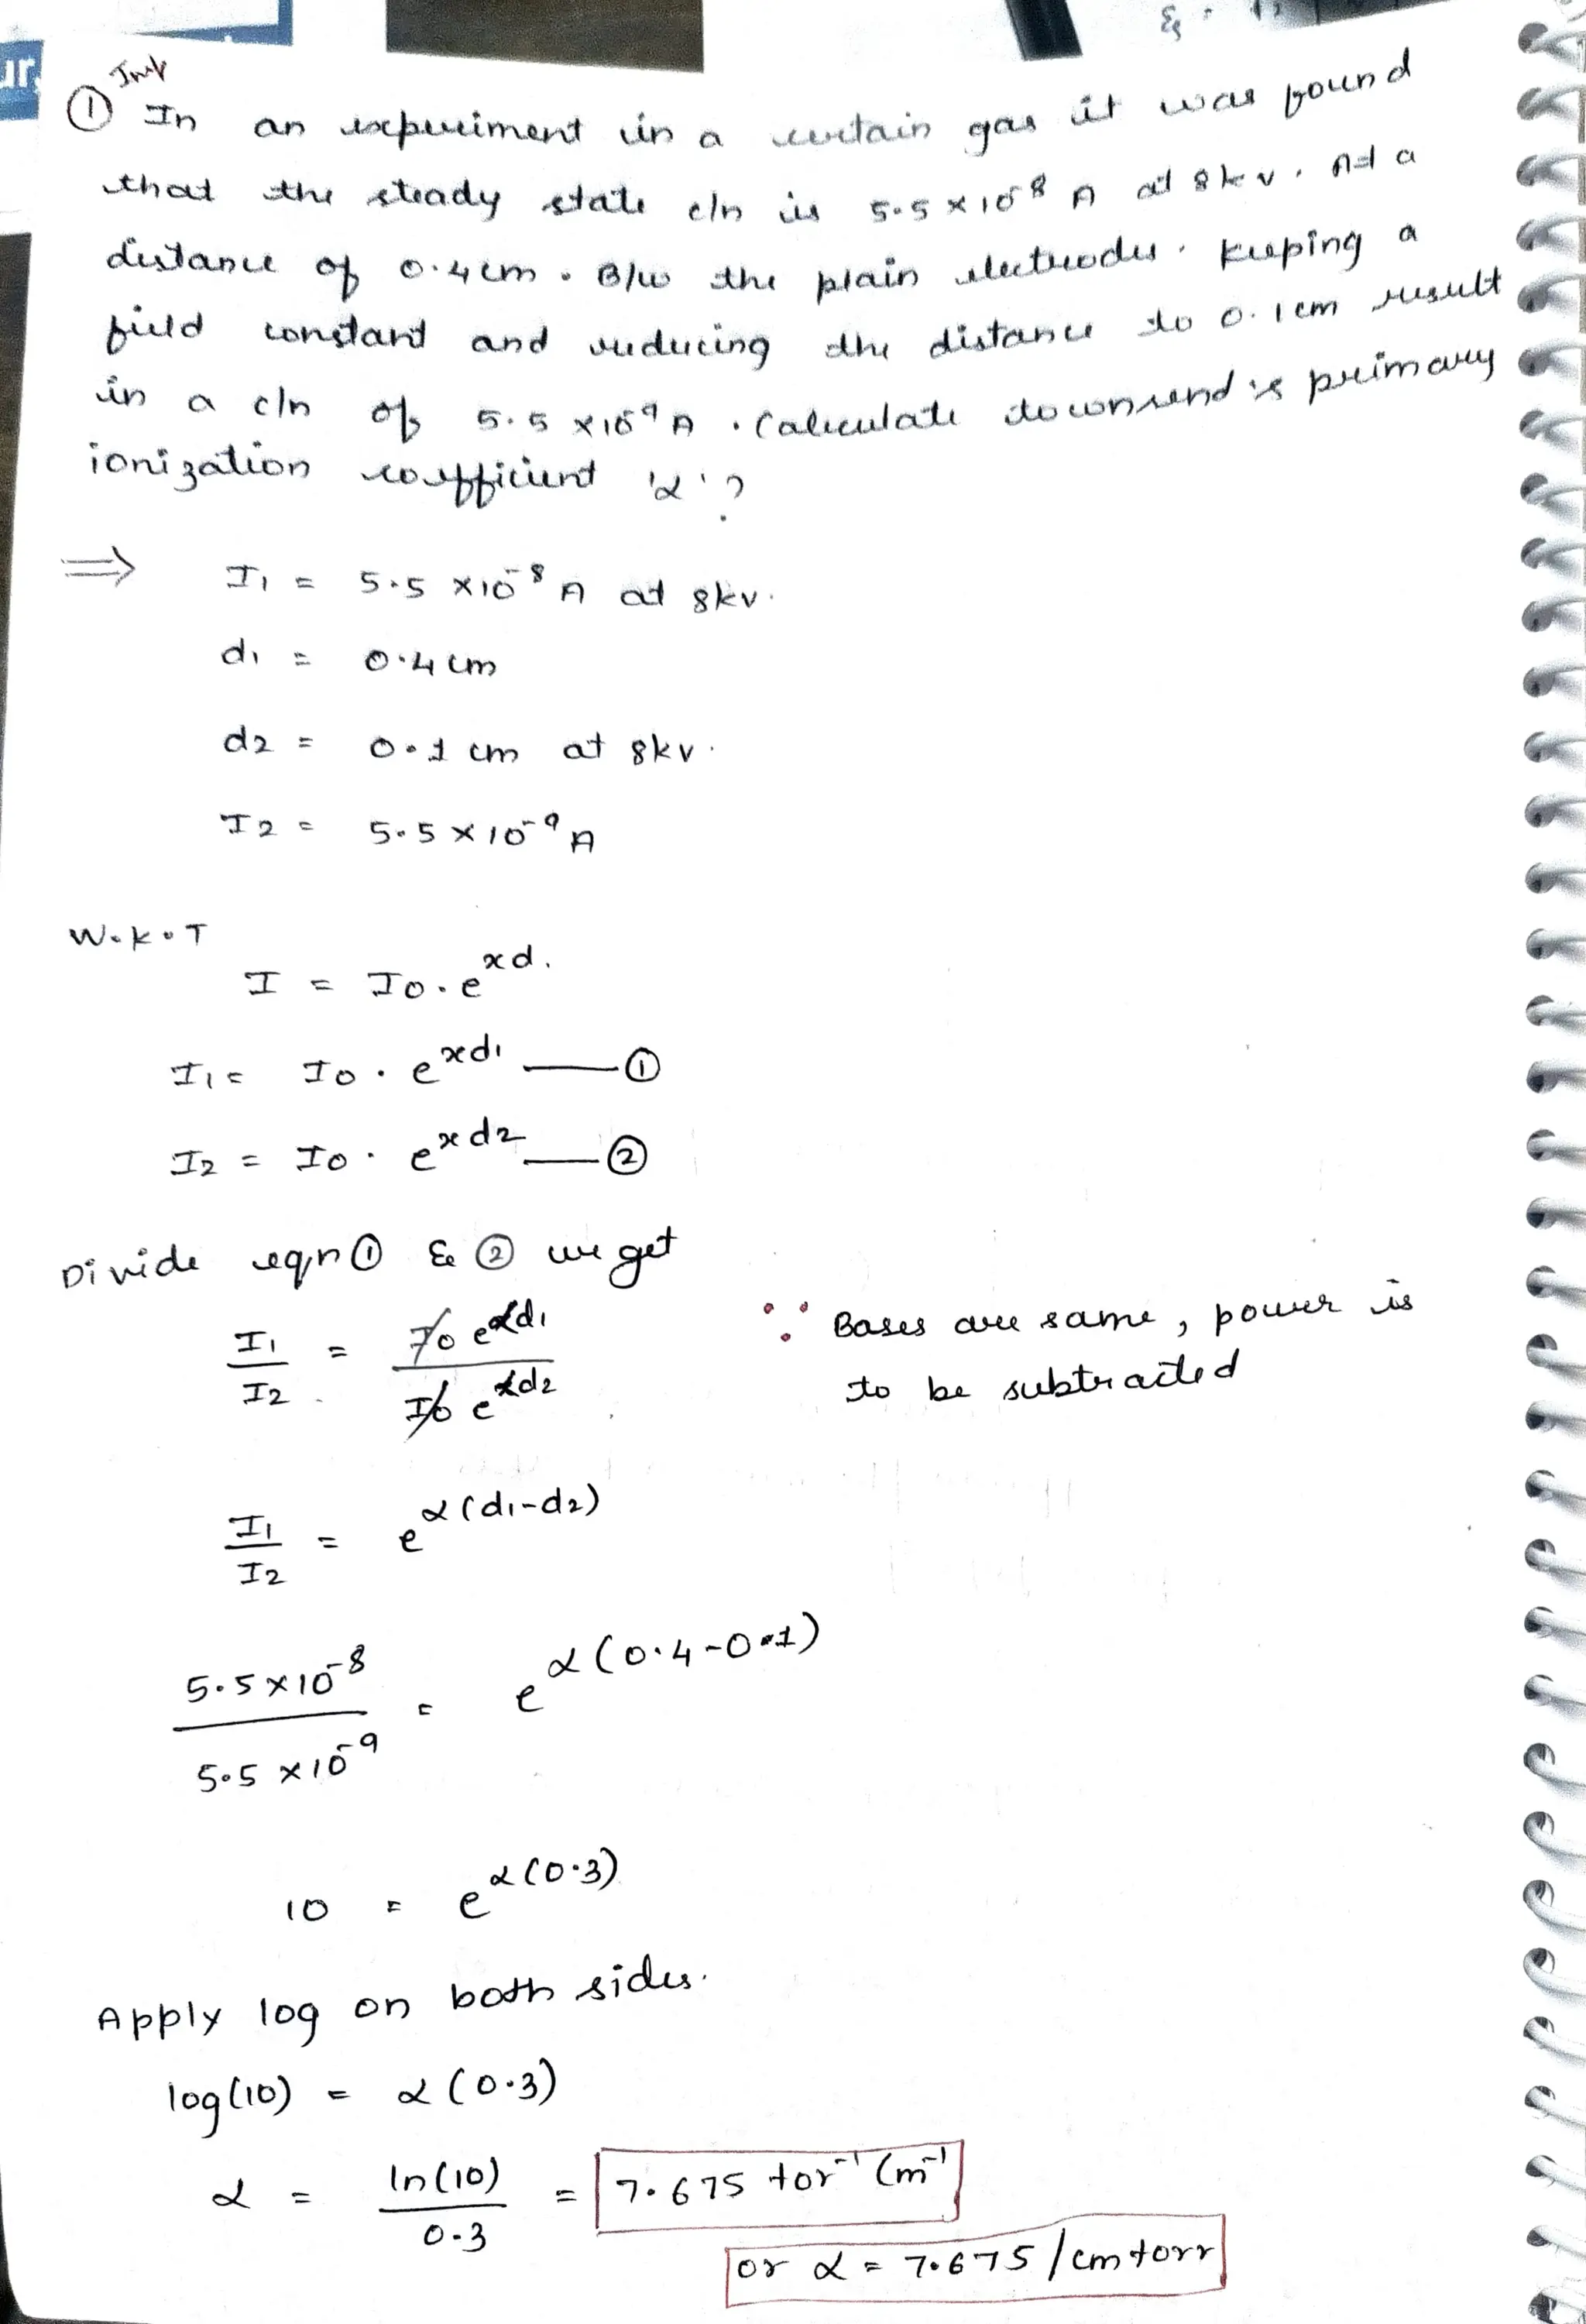 ur,
Imp
① In an experiment in a certain gas it was found
that the steady state c/n is 5.5 × 10⁻⁸ A at 8kv. At a
distance of 0.4cm. B/w the plain electrodes. Keeping a
field constant and reducing the distance to 0.1cm result
in a c/n of 5.5 × 10⁻⁹ A. Calculate townsend's primary
ionization coefficient 'α'?
⇒ I1 = 5.5 × 10⁻⁸ A at 8kv.
d1 = 0.4 cm
d2 = 0.1 cm at 8kv.
I2 = 5.5 × 10⁻⁹ A
W.K.T
I = I0 . e^αd.
I1 = I0 . e^αd1 —— ①
I2 = I0 . e^αd2 —— ②
Divide eqn ① & ② we get
I1/I2 = I0 e^αd1 / I0 e^αd2 ∵ Bases are same, power is
to be subtracted
I1/I2 = e^α(d1-d2)
5.5 × 10⁻⁸ / 5.5 × 10⁻⁹ = e^α(0.4-0.1)
10 = e^α(0.3)
Apply log on both sides.
log(10) = α(0.3)
α = ln(10)/0.3 = 7.675 tor⁻¹ cm⁻¹
or α = 7.675 /cm torr